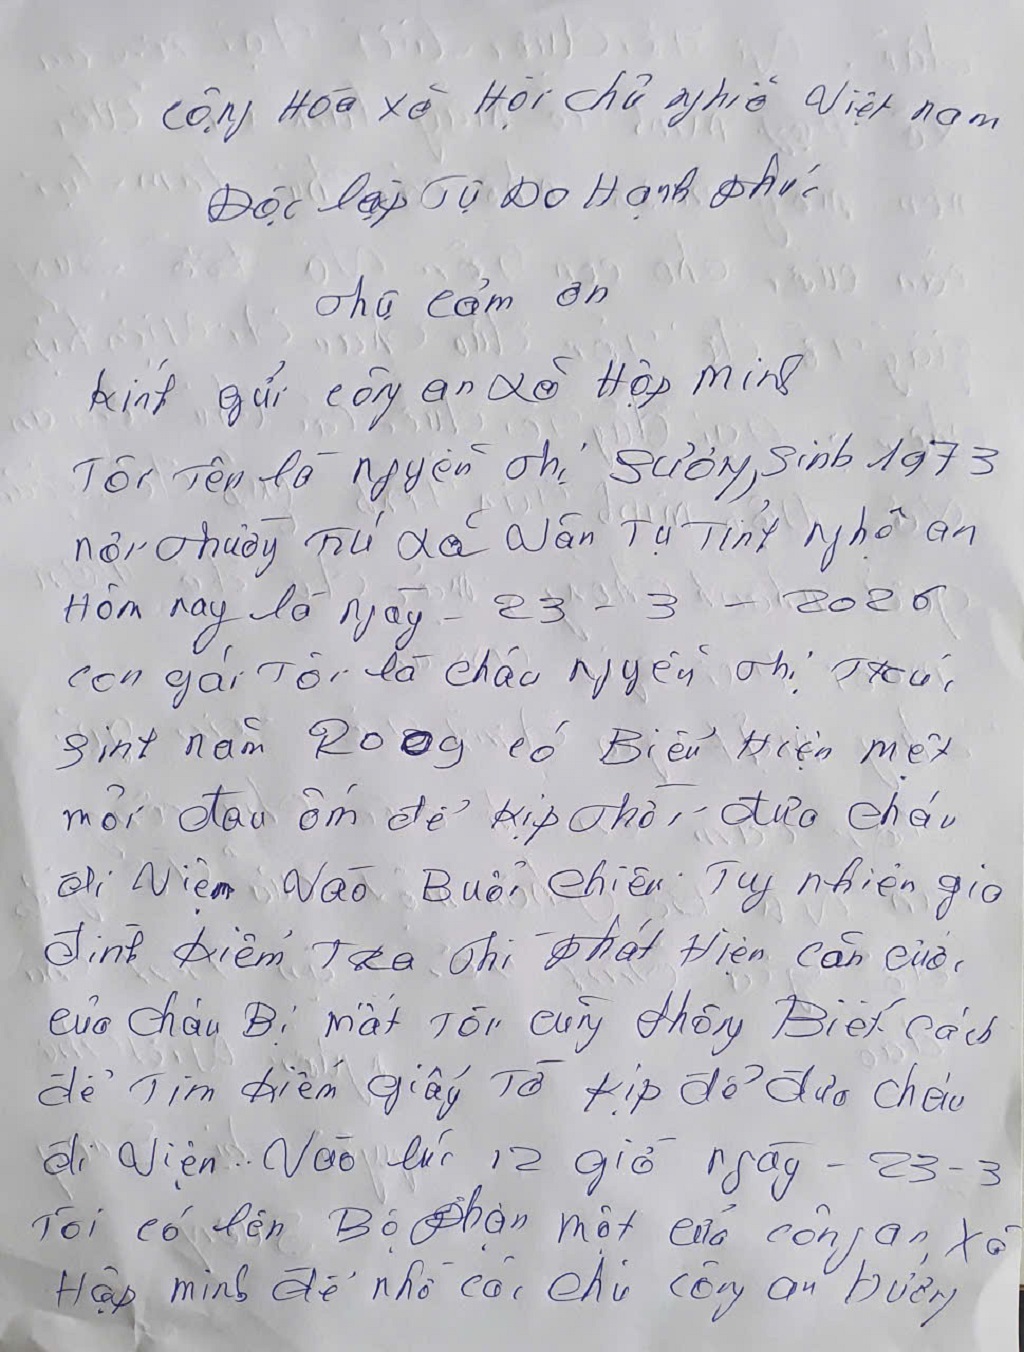 Cộng Hòa Xã Hội chủ nghĩa Việt nam
Độc lập Tự Do Hạnh phúc
Thư cảm ơn
Kính gửi công an xã Hợp Minh
Tôi Tên là Nguyễn Thị Sương, sinh 1973
nơi thường Trú xã Vân Tụ Tỉnh Nghệ an
Hôm nay là ngày - 23 - 3 - 2026
con gái Tôi là cháu Nguyễn Thị
sinh năm 2009 có Biểu Hiện mệt
mỏi đau ốm để kịp thời đưa cháu
đi Viện Vào Buổi chiều. Tuy nhiên gia
đình kiểm Tra thì phát Hiện căn cước
của cháu Bị mất Tôi cũng không Biết cách
để Tìm kiếm giấy Tờ kịp để đưa cháu
đi Viện.. Vào lúc 12 giờ ngày - 23 - 3
Tôi có lên Bộ phận một cửa công an, xã
Hợp minh để nhờ các chú công an Hướng